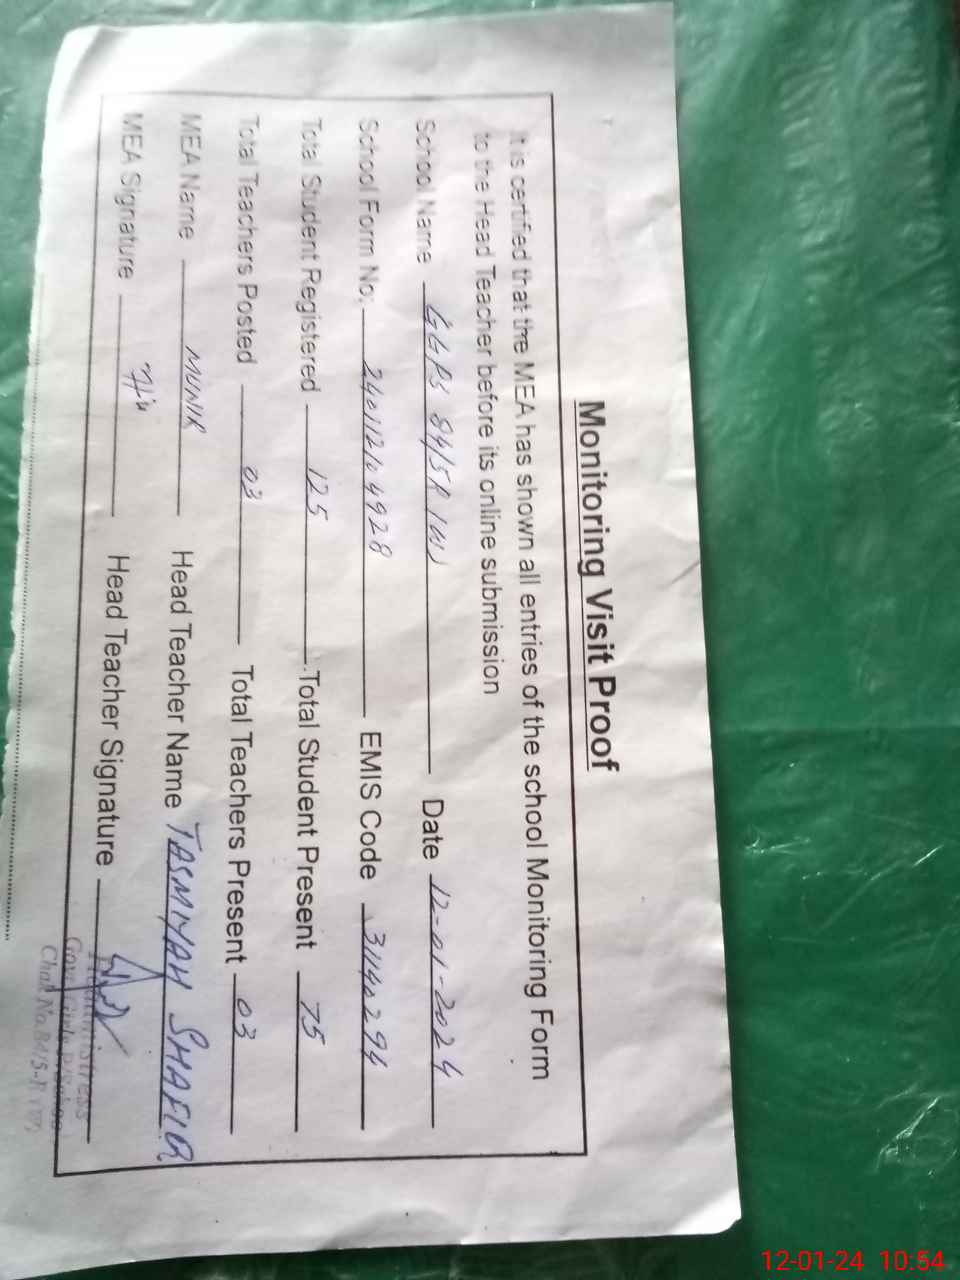 Monitoring Visit Proof
It is certified that the MEA has shown all entries of the school Monitoring Form
to the Head Teacher before its online submission
School Name GGPS 84/5R (W) Date 12-01-2024
School Form No: 240112104928 EMIS Code 31140294
Total Student Registered 125 Total Student Present 75
Total Teachers Posted 03 Total Teachers Present 03
MEA Name MUNIR Head Teacher Name TASMIYAH SHAFIQ
MEA Signature Head Teacher Signature
Headmistress
Govt. Girls P/School
Chak No.84/5-R
12-01-24 10:54